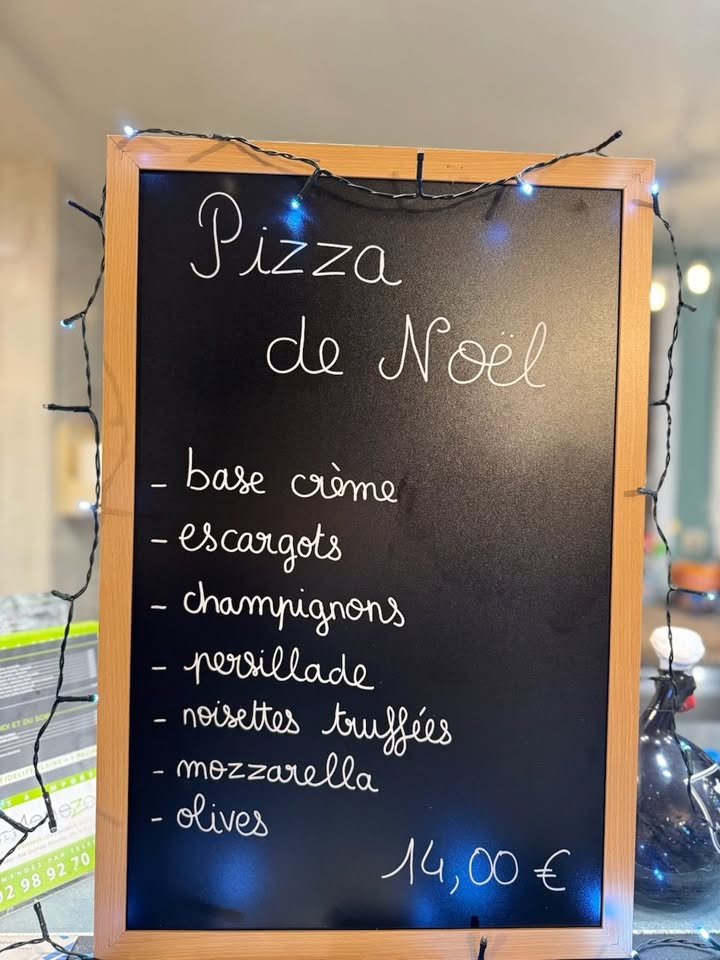 Pizza
de Noël
- base crème
- escargots
- champignons
- persillade
- noisettes truffées
- mozzarella
- olives
14,00 €
02 98 92 70